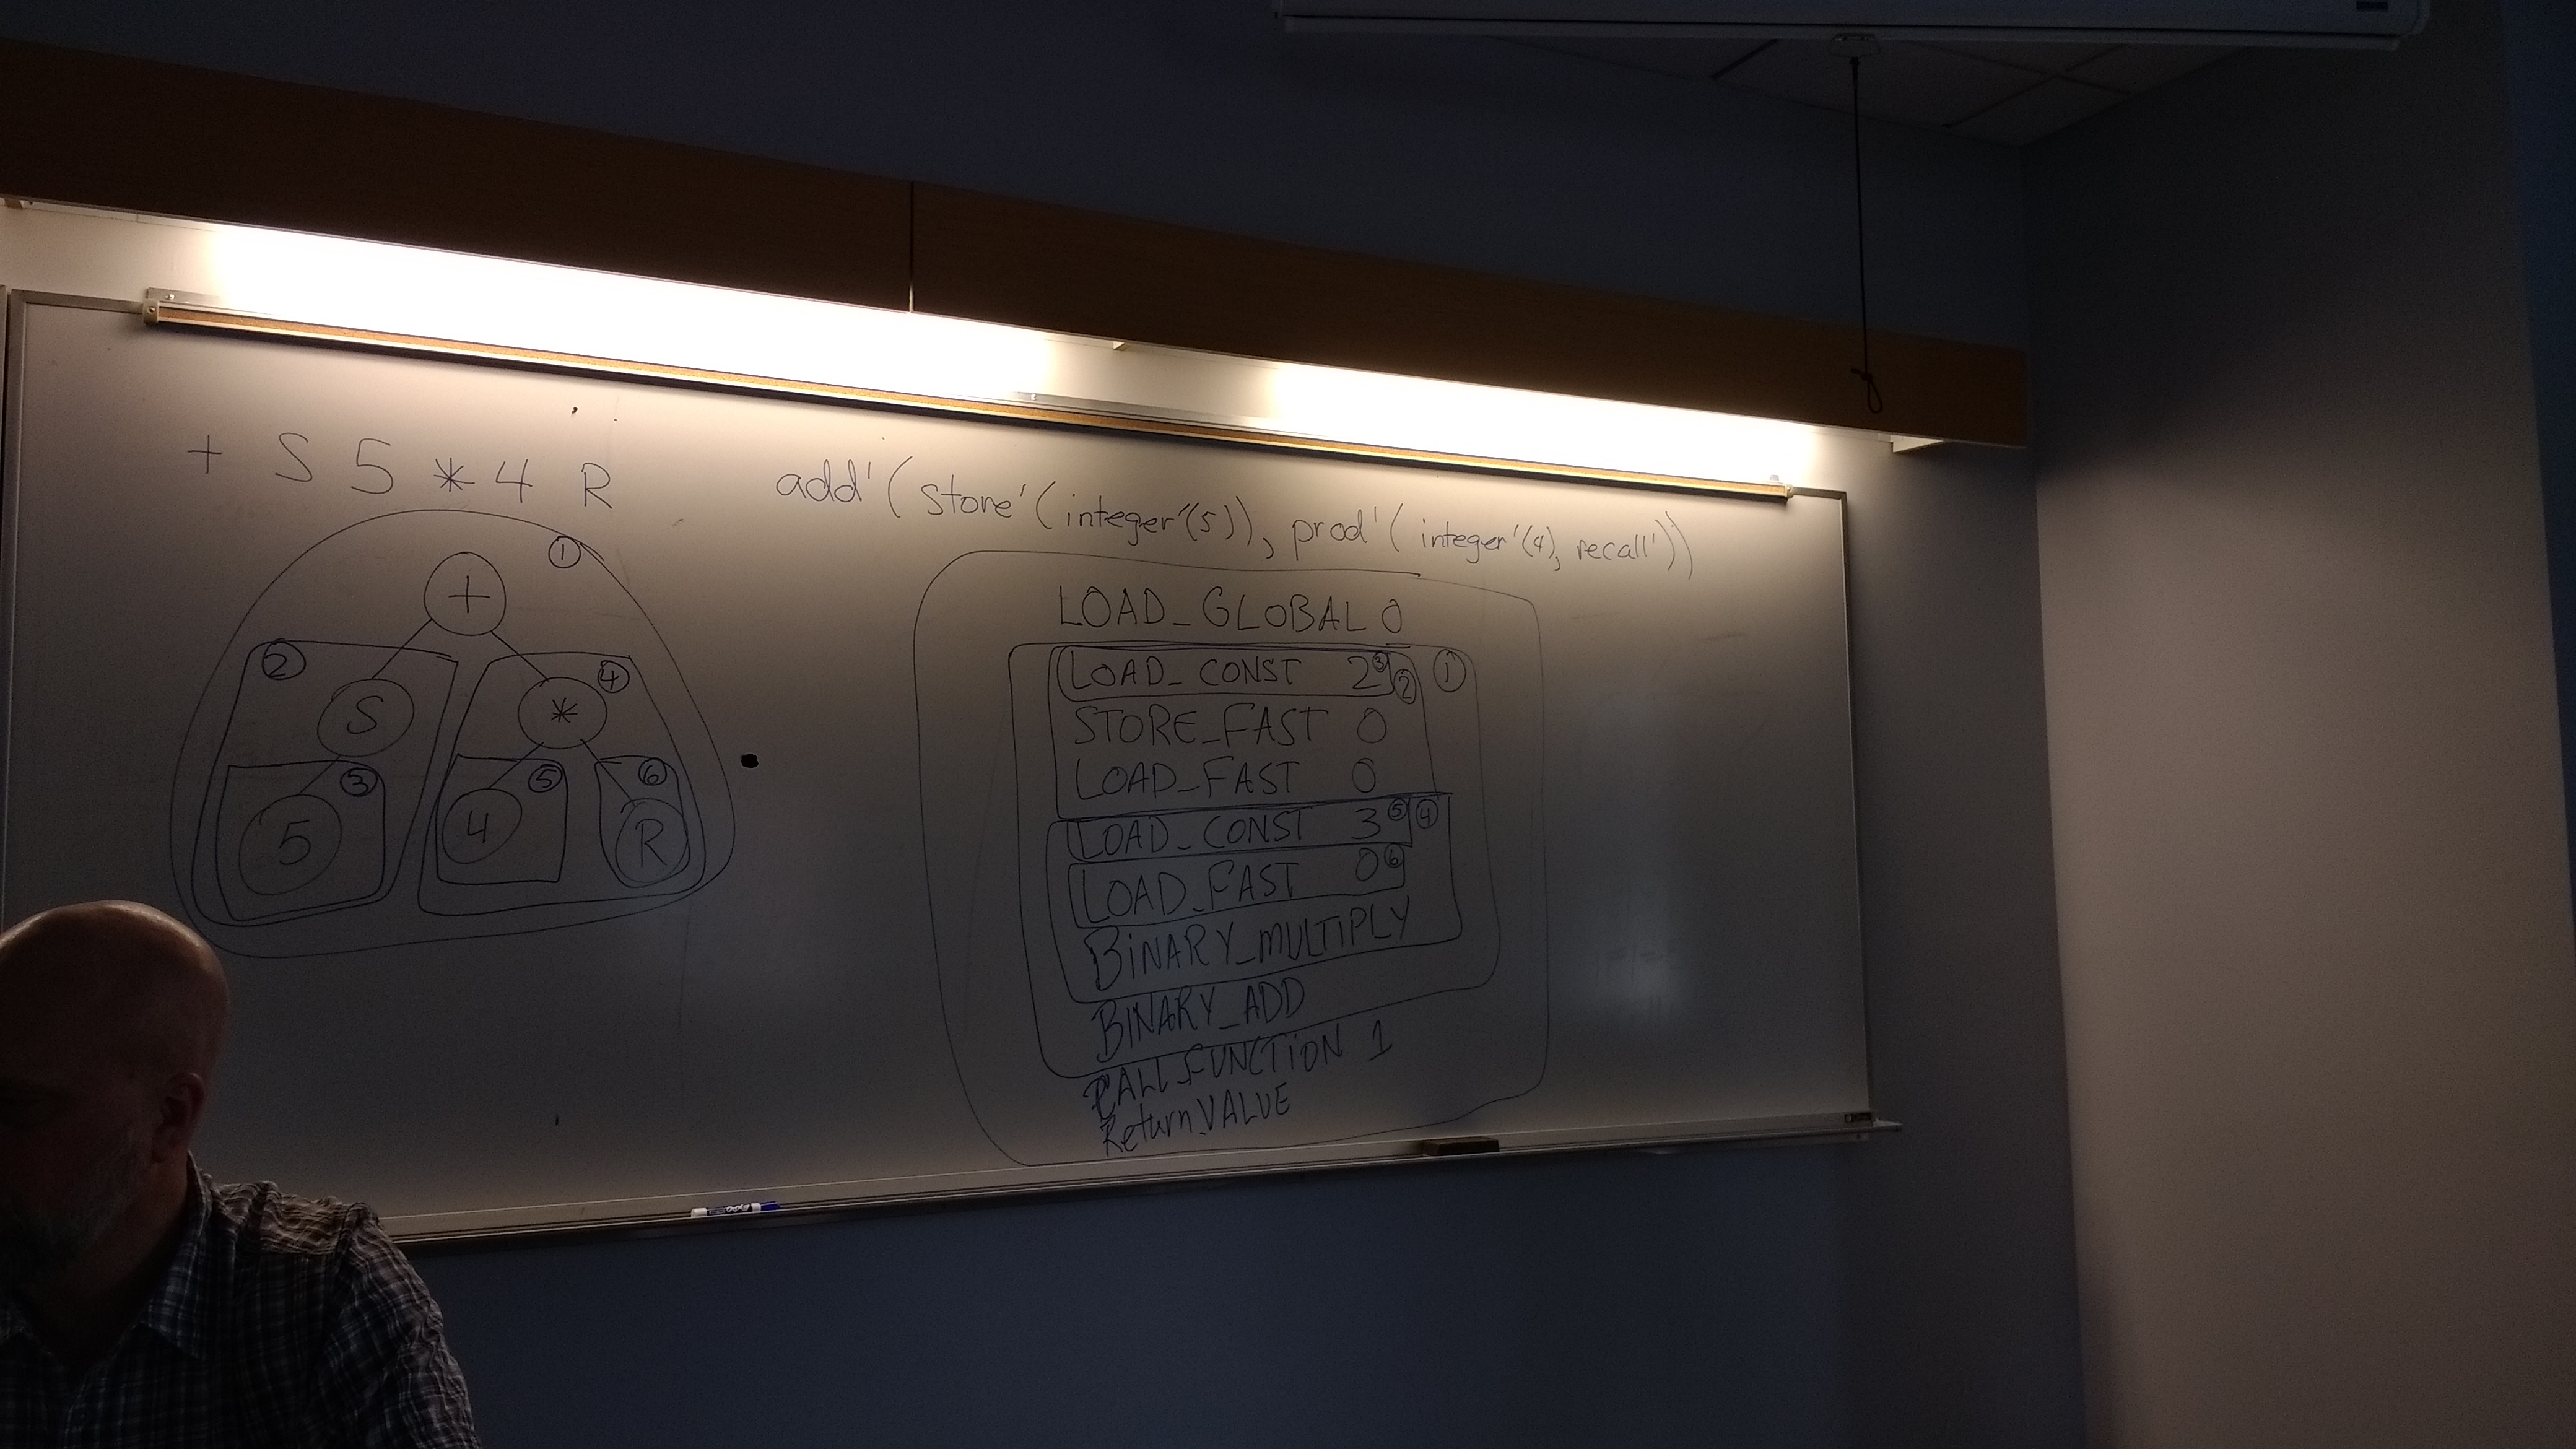 + S 5 * 4 R
add'(store'(integer'(5)), prod'(integer'(4), recall'))
1
+
2
4
S
*
3
5
6
5
4
R
LOAD_GLOBAL 0
LOAD_CONST 2 3 2 1
STORE_FAST 0
LOAD_FAST 0
LOAD_CONST 3 5 4
LOAD_FAST 0 6
BINARY_MULTIPLY
BINARY_ADD
CALL_FUNCTION 1
Return_VALUE